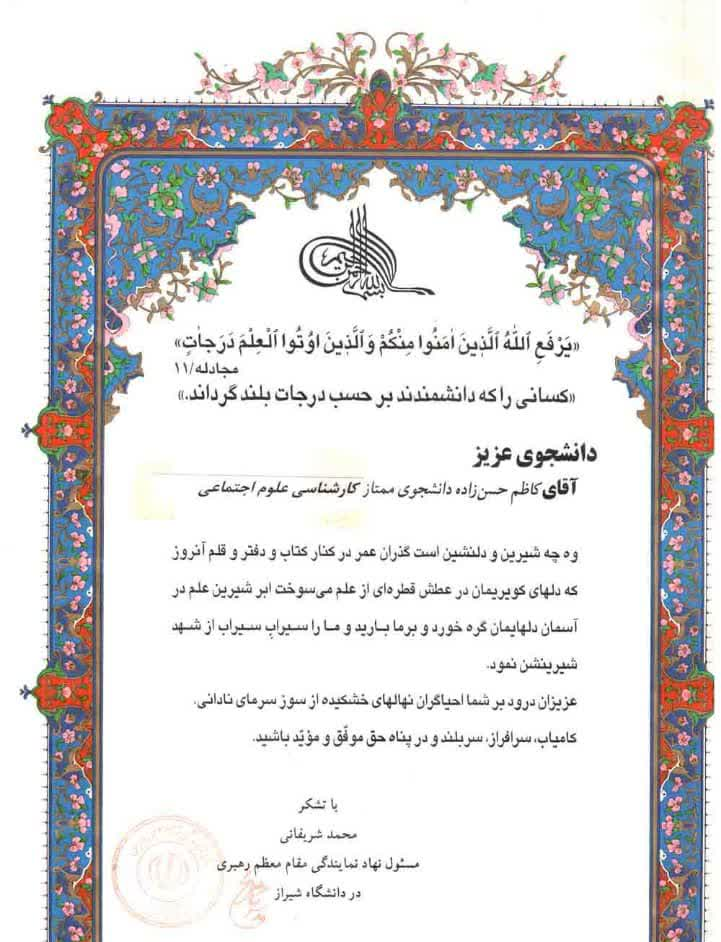 بسم الله الرحمن الرحیم
«یَرْفَعِ ٱللّٰهُ ٱلَّذِینَ اٰمَنُوا مِنْکُمْ وَ ٱلَّذِینَ اوُتُوا ٱلْعِلْمَ دَرَجاٰتٍ»
مجادله/۱۱
«کسانی را که دانشمندند بر حسب درجات بلند گرداند.»
دانشجوی عزیز
آقای کاظم حسن‌زاده دانشجوی ممتاز کارشناسی علوم اجتماعی
وه چه شیرین و دلنشین است گذران عمر در کنار کتاب و دفتر و قلم آنروز
که دلهای کویریمان در عطش قطره‌ای از علم می‌سوخت ابر شیرین علم در
آسمان دلهایمان گره خورد و برما بارید و ما را سیرابِ سیراب از شهد
شیرینشن نمود.
عزیزان درود بر شما احیاگران نهالهای خشکیده از سوز سرمای نادانی.
کامیاب، سرافراز، سربلند و در پناه حق موفّق و مؤیّد باشید.
با تشکر
محمد شریفانی
مسئول نهاد نمایندگی مقام معظم رهبری
در دانشگاه شیراز